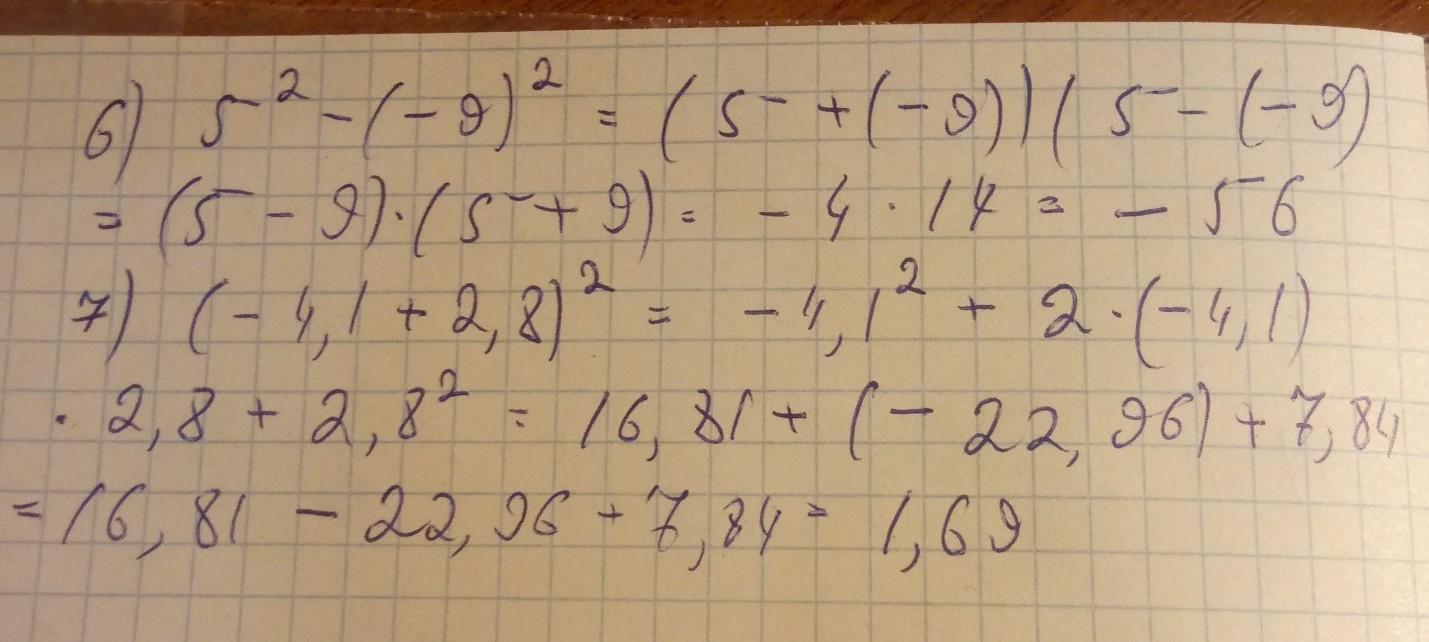 6) 5² - (-9)² = (5 + (-9))(5 - (-9)
= (5 - 9)·(5 + 9) = - 4 · 14 = - 56
7) (- 4,1 + 2,8)² = - 4,1² + 2·(-4,1)
· 2,8 + 2,8² = 16,81 + (- 22,96) + 7,84
= 16,81 - 22,96 + 7,84 = 1,69